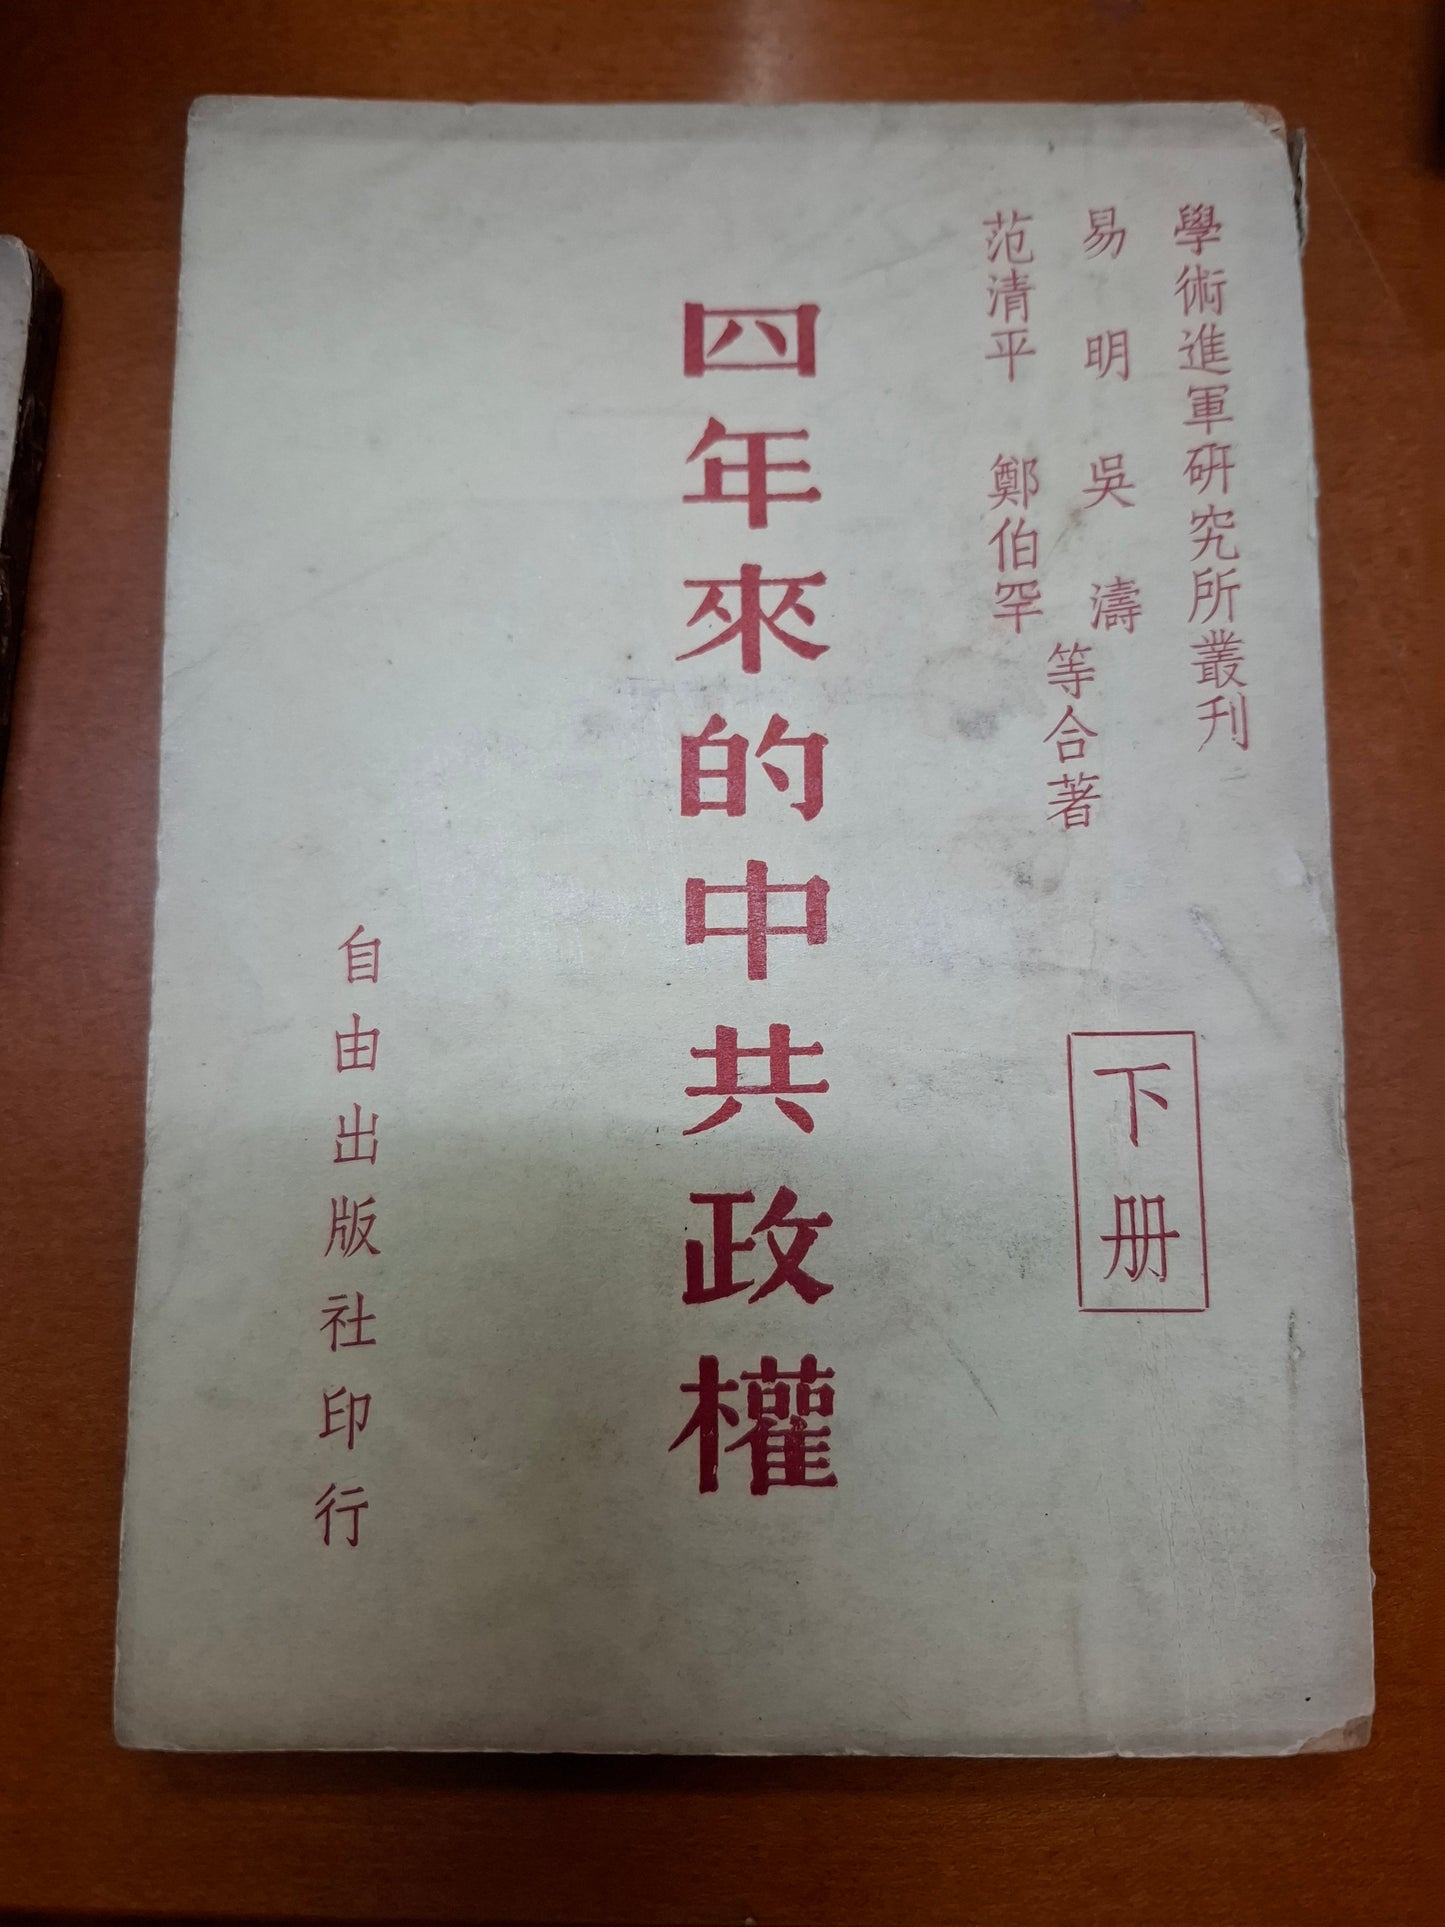 學術進軍研究所叢刊
易明 吳濤
范清平 鄭伯罕
等合著
下册
四年來的中共政權
自由出版社印行